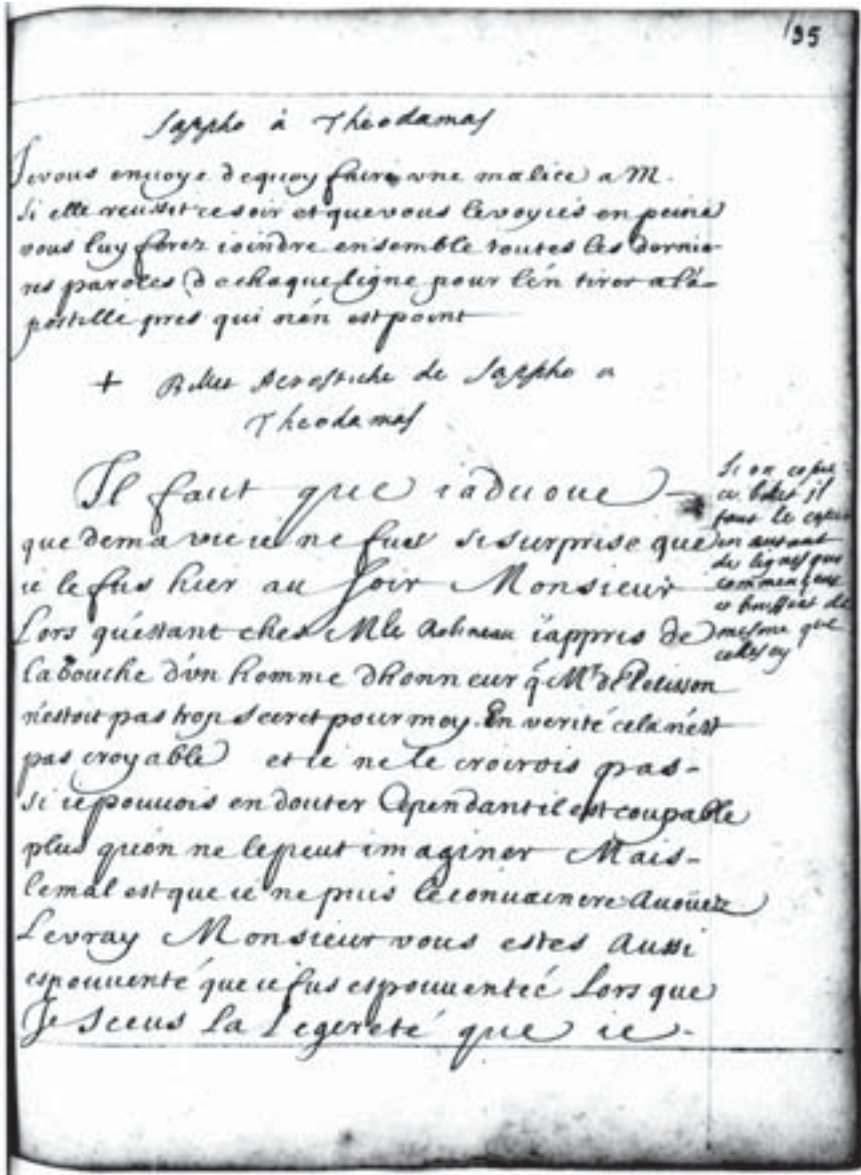 195
Sappho à Theodamas
Je vous envoye dequoy faire une malice a M.
Si elle reussit ce soir et que vous le voyiés en peine
vous luy ferez joindre ensemble toutes les dernie-
res paroles de chaque ligne pour l'en tirer a l'a-
postille pres qui n'en est point
+ Billet Acrostiche de Sappho a
Theodamas
Il faut que i'aduoue
que de ma vie ie ne fus si surprise que
ie le fus hier au Soir Monsieur
Lors qu'estant ches Mlle Robineau i'appris de
la bouche d'vn homme d'honneur q̃ Mr de Pelisson
n'estoit pas trop secret pour moy. En verité cela n'est
pas croyable et ie ne le croirois pas-
si ie pouuois en douter Cependant il est coupable
plus qu'on ne le peut imaginer Mais-
le mal est que ie ne puis le conuaincre Auoüez
Le vray Monsieur vous estes Aussi
espouuenté que ie fus espouuenteé Lors que
Je Sceus La Legereté que ie-
Si on copie
ce billet il
faut le copier
en autant
de lignes qui
commencent
et finissent de
mesme que
celles cy